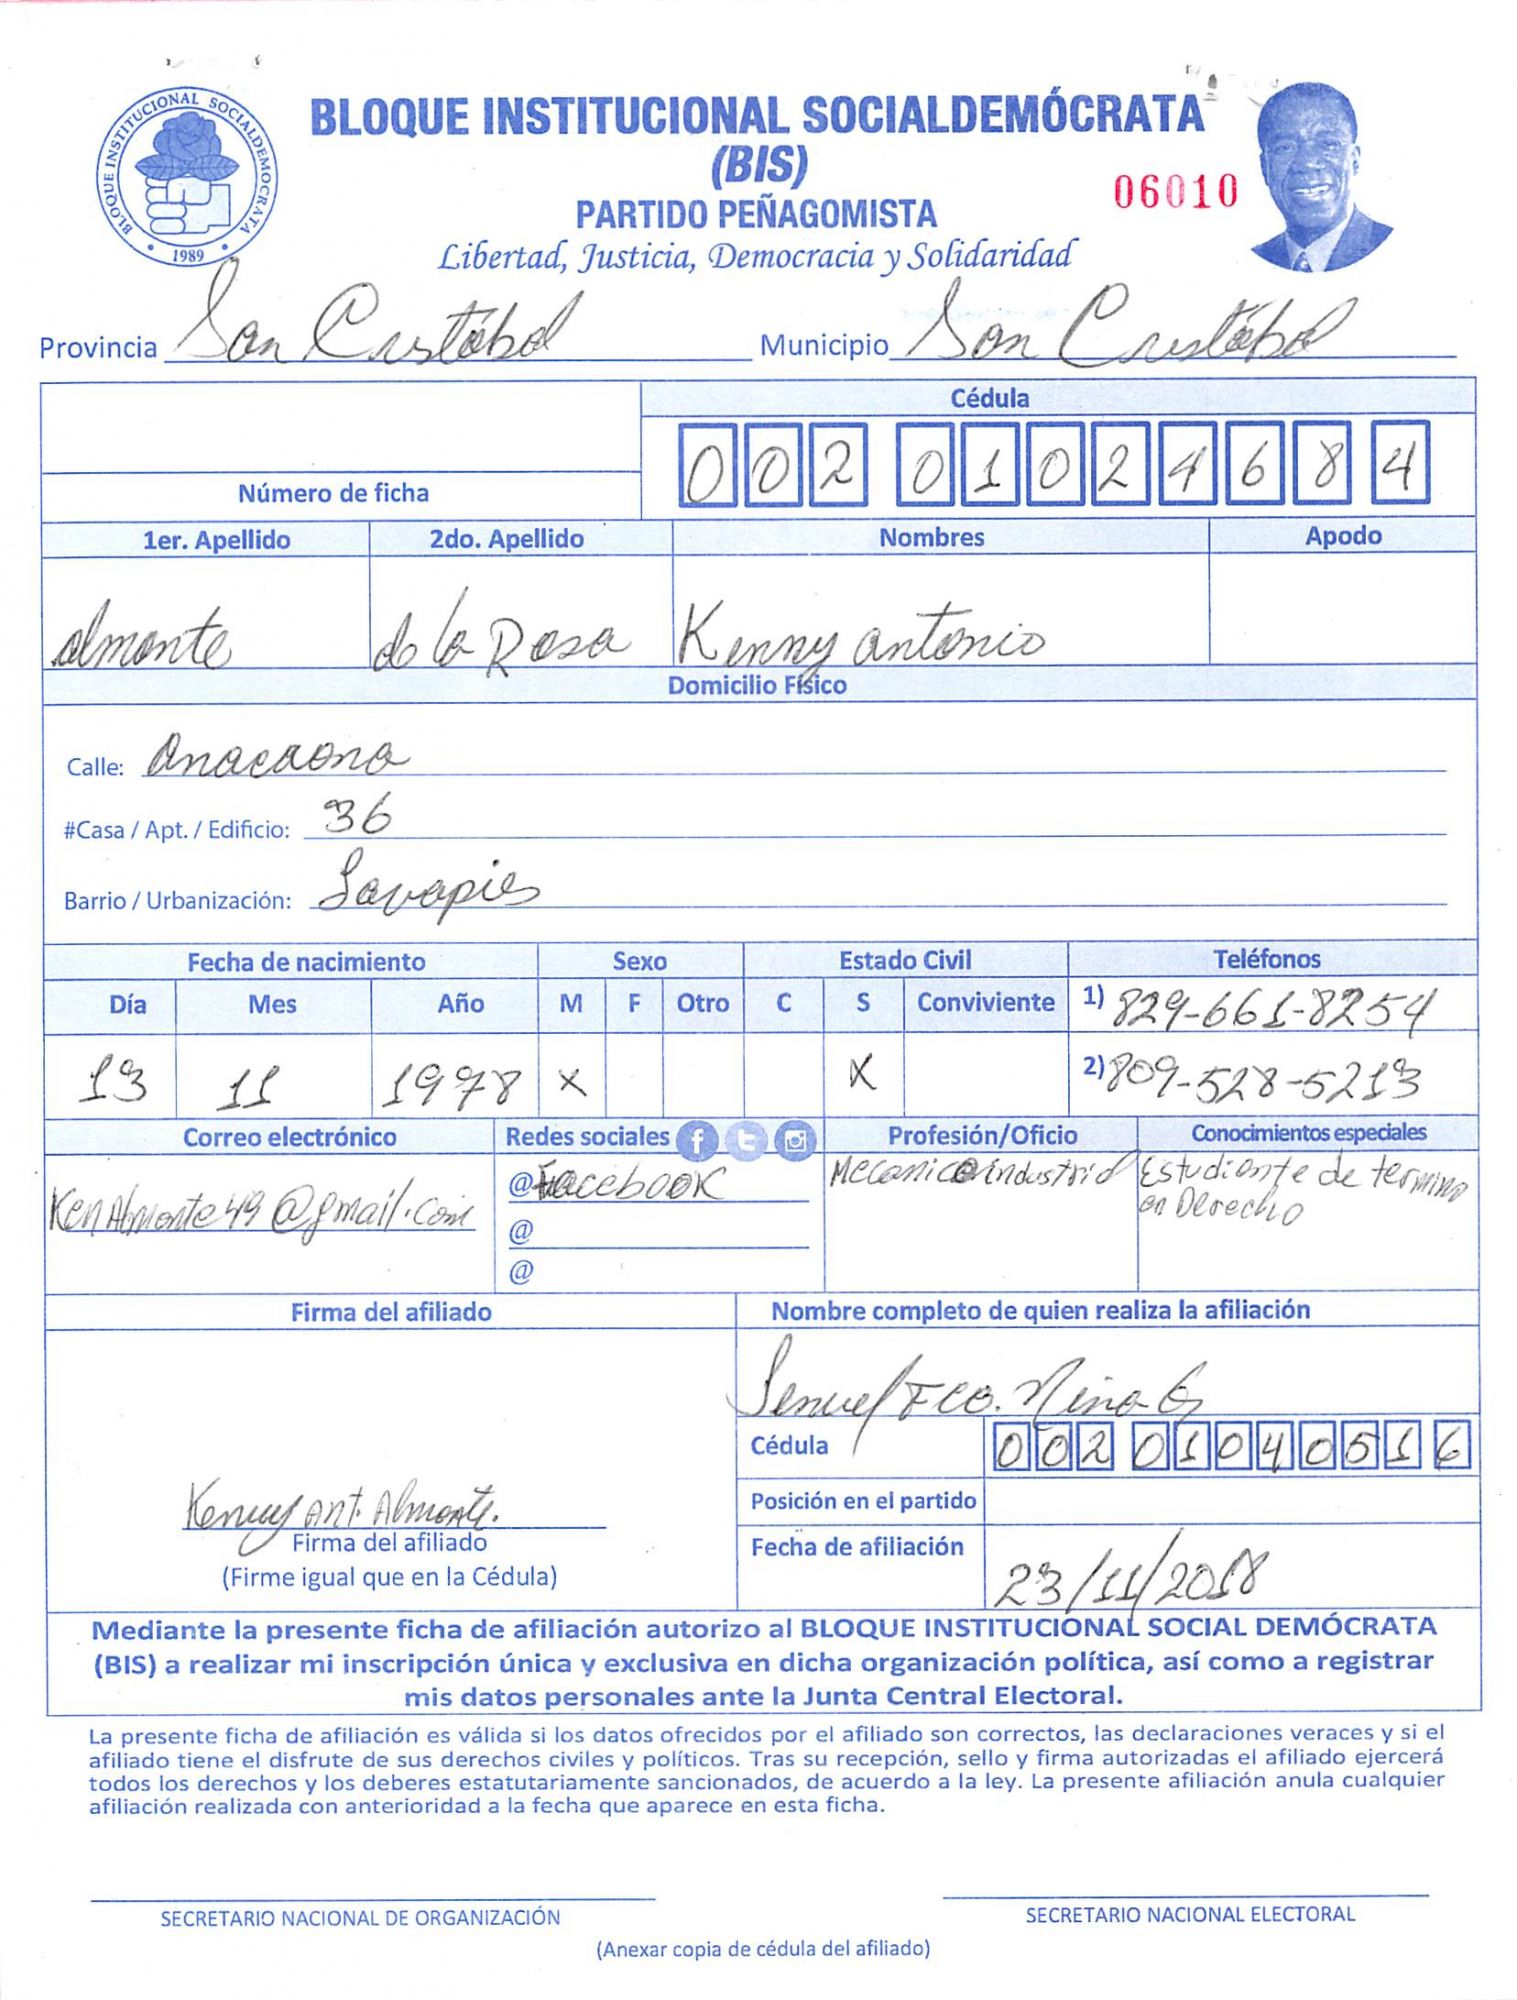 BLOQUE INSTITUCIONAL SOCIALDEMOCRATA
1989
BLOQUE INSTITUCIONAL SOCIALDEMÓCRATA
(BIS)
06010
PARTIDO PEÑAGOMISTA
Libertad, Justicia, Democracia y Solidaridad
Provincia San Cristóbal Municipio San Cristóbal
Cédula
002 0102468 4
Número de ficha
1er. Apellido 2do. Apellido Nombres Apodo
Almonte de la Rosa Kenny Antonio
Domicilio Físico
Calle: Anacaona
#Casa / Apt. / Edificio: 36
Barrio / Urbanización: Lavapies
Fecha de nacimiento Sexo Estado Civil Teléfonos
Día Mes Año M F Otro C S Conviviente 1) 829-661-8254
13 11 1978 X X 2) 809-528-5213
Correo electrónico Redes sociales Profesión/Oficio Conocimientos especiales
KenAlmonte49@gmail.com @Facebook Mecanico industrial Estudiante de termino
@ en Derecho
@
Firma del afiliado Nombre completo de quien realiza la afiliación
Fco. Nina G
Cédula 002 0104051 6
Posición en el partido
Kenny Ant. Almonte.
Firma del afiliado
(Firme igual que en la Cédula)
Fecha de afiliación 23/11/2018
Mediante la presente ficha de afiliación autorizo al BLOQUE INSTITUCIONAL SOCIAL DEMÓCRATA
(BIS) a realizar mi inscripción única y exclusiva en dicha organización política, así como a registrar
mis datos personales ante la Junta Central Electoral.
La presente ficha de afiliación es válida si los datos ofrecidos por el afiliado son correctos, las declaraciones veraces y si el
afiliado tiene el disfrute de sus derechos civiles y políticos. Tras su recepción, sello y firma autorizadas el afiliado ejercerá
todos los derechos y los deberes estatutariamente sancionados, de acuerdo a la ley. La presente afiliación anula cualquier
afiliación realizada con anterioridad a la fecha que aparece en esta ficha.
SECRETARIO NACIONAL DE ORGANIZACIÓN SECRETARIO NACIONAL ELECTORAL
(Anexar copia de cédula del afiliado)